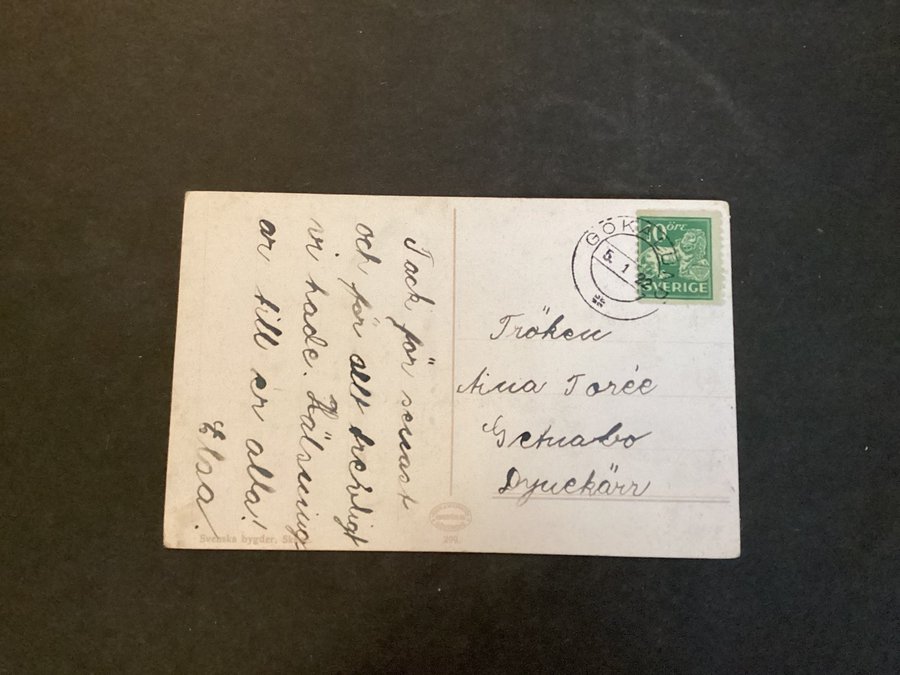 Tack för senast
och för allt trevligt
vi hade. Hälsning
ar till er alla!
Elsa.
Svenska bygder.
299.
GÖKALUND
5. 1
10 öre
SVERIGE
Fröken
Aina Torée
Getnabo
Dynekärr